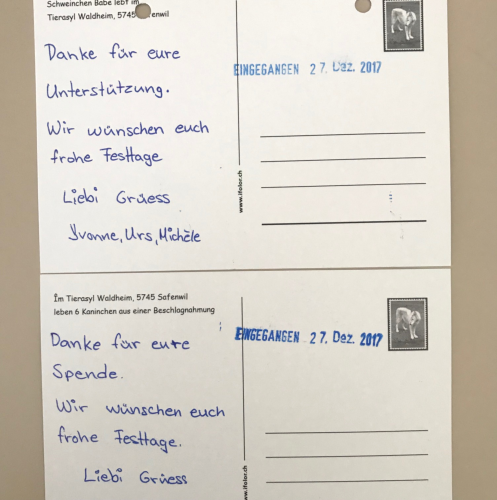 Schweinchen Babe lebt im
Tierasyl Waldheim, 5745 Safenwil
Danke für eure
Unterstützung.
Wir wünschen euch
frohe Festtage
Liebi Grüess
Yvonne, Urs, Michèle
EINGEGANGEN 27. Dez. 2017
www.ifolor.ch
Im Tierasyl Waldheim, 5745 Safenwil
leben 6 Kaninchen aus einer Beschlagnahmung
Danke für eure
Spende.
Wir wünschen euch
frohe Festtage.
Liebi Grüess
EINGEGANGEN 27. Dez. 2017
www.ifolor.ch